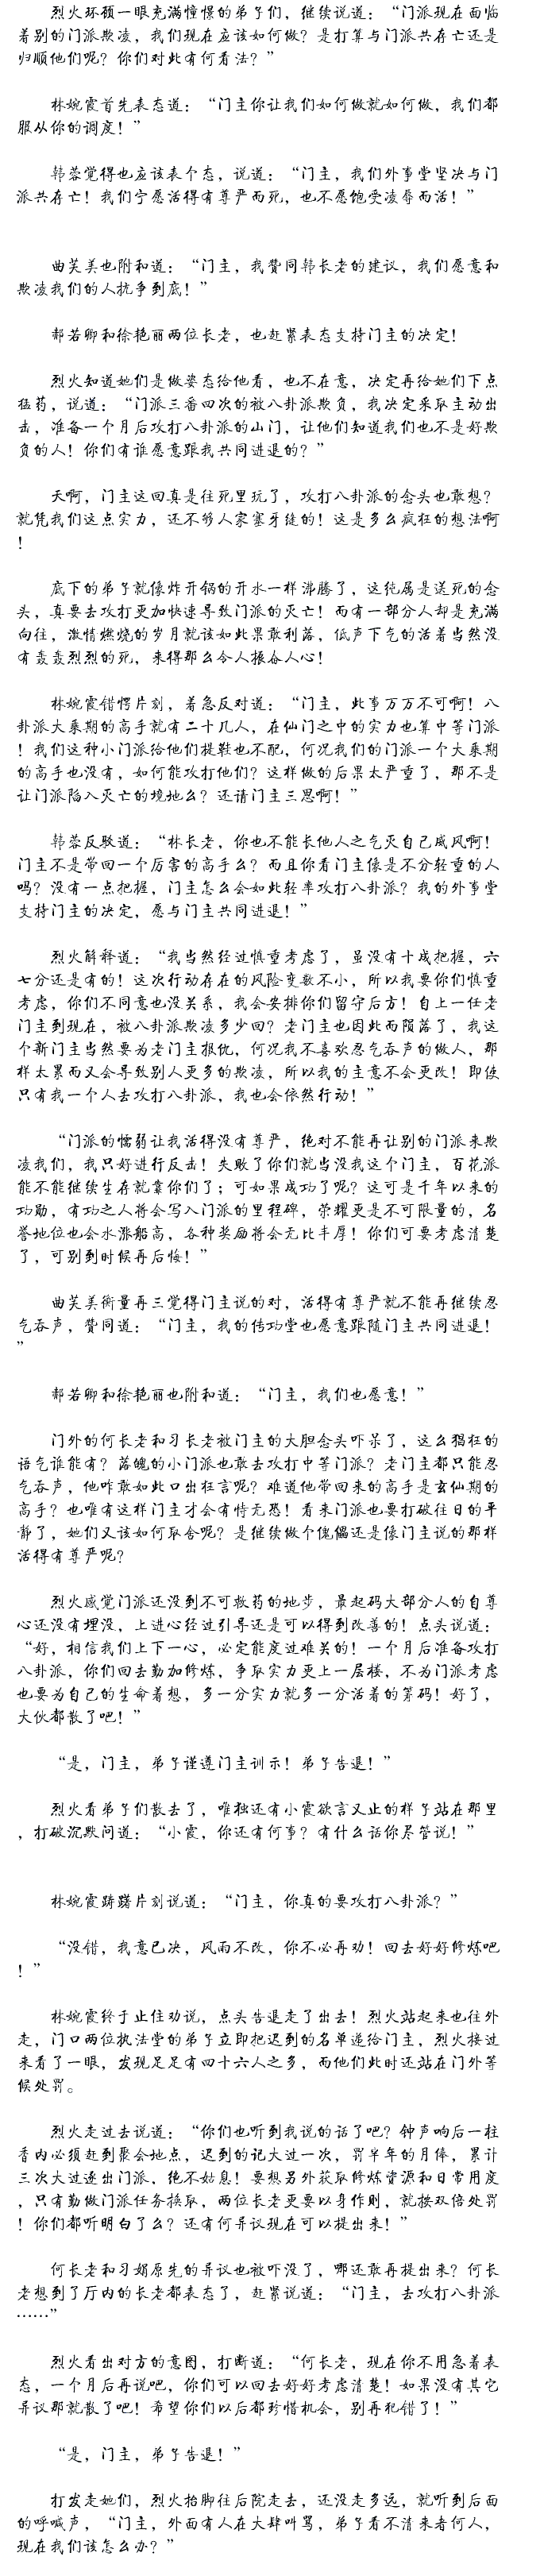 烈火环顾一眼充满憧憬的弟子们，继续说道：“门派现在面临
着别的门派欺凌，我们现在应该如何做？是打算与门派共存亡还是
归顺他们呢？你们对此有何看法？”
林婉霞首先表态道：“门主你让我们如何做就如何做，我们都
服从你的调度！”
韩蓉觉得也应该表个态，说道：“门主，我们外事堂坚决与门
派共存亡！我们宁愿活得有尊严而死，也不愿饱受凌辱而活！”
曲芙美也附和道：“门主，我赞同韩长老的建议，我们愿意和
欺凌我们的人抗争到底！”
郝若卿和徐艳丽两位长老，也赶紧表态支持门主的决定！
烈火知道她们是做姿态给他看，也不在意，决定再给她们下点
猛药，说道：“门派三番四次的被八卦派欺负，我决定采取主动出
击，准备一个月后攻打八卦派的山门，让他们知道我们也不是好欺
负的人！你们有谁愿意跟我共同进退的？”
天啊，门主这回真是往死里玩了，攻打八卦派的念头也敢想？
就凭我们这点实力，还不够人家塞牙缝的！这是多么疯狂的想法啊
！
底下的弟子就像炸开锅的开水一样沸腾了，这纯属是送死的念
头，真要去攻打更加快速导致门派的灭亡！而有一部分人却是充满
向往，激情燃烧的岁月就该如此果敢利落，低声下气的活着当然没
有轰轰烈烈的死，来得那么令人振奋人心！
林婉霞错愕片刻，着急反对道：“门主，此事万万不可啊！八
卦派大乘期的高手就有二十几人，在仙门之中的实力也算中等门派
！我们这种小门派给他们提鞋也不配，何况我们的门派一个大乘期
的高手也没有，如何能攻打他们？这样做的后果太严重了，那不是
让门派陷入灭亡的境地么？还请门主三思啊！”
韩蓉反驳道：“林长老，你也不能长他人之气灭自己威风啊！
门主不是带回一个厉害的高手么？而且你看门主像是不分轻重的人
吗？没有一点把握，门主怎么会如此轻率攻打八卦派？我的外事堂
支持门主的决定，愿与门主共同进退！”
烈火解释道：“我当然经过慎重考虑了，虽没有十成把握，六
七分还是有的！这次行动存在的风险变数不小，所以我要你们慎重
考虑，你们不同意也没关系，我会安排你们留守后方！自上一任老
门主到现在，被八卦派欺凌多少回？老门主也因此而陨落了，我这
个新门主当然要为老门主报仇，何况我不喜欢忍气吞声的做人，那
样太累而又会导致别人更多的欺凌，所以我的主意不会更改！即使
只有我一个人去攻打八卦派，我也会依然行动！”
“门派的懦弱让我活得没有尊严，绝对不能再让别的门派来欺
凌我们，我只好进行反击！失败了你们就当没我这个门主，百花派
能不能继续生存就靠你们了；可如果成功了呢？这可是千年以来的
功勋，有功之人将会写入门派的里程碑，荣耀更是不可限量的，名
誉地位也会水涨船高，各种奖励将会无比丰厚！你们可要考虑清楚
了，可别到时候再后悔！”
曲芙美衡量再三觉得门主说的对，活得有尊严就不能再继续忍
气吞声，赞同道：“门主，我的传功堂也愿意跟随门主共同进退！
”
郝若卿和徐艳丽也附和道：“门主，我们也愿意！”
门外的何长老和习长老被门主的大胆念头吓呆了，这么猖狂的
语气谁能有？落魄的小门派也敢去攻打中等门派？老门主都只能忍
气吞声，他咋敢如此口出狂言呢？难道他带回来的高手是玄仙期的
高手？也唯有这样门主才会有恃无恐！看来门派也要打破往日的平
静了，她们又该如何取舍呢？是继续做个傀儡还是像门主说的那样
活得有尊严呢？
烈火感觉门派还没到不可救药的地步，最起码大部分人的自尊
心还没有埋没，上进心经过引导还是可以得到改善的！点头说道：
“好，相信我们上下一心，必定能度过难关的！一个月后准备攻打
八卦派，你们回去勤加修炼，争取实力更上一层楼，不为门派考虑
也要为自己的生命着想，多一分实力就多一分活着的筹码！好了，
大伙都散了吧！”
“是，门主，弟子谨遵门主训示！弟子告退！”
烈火看弟子们散去了，唯独还有小霞欲言又止的样子站在那里
，打破沉默问道：“小霞，你还有何事？有什么话你尽管说！”
林婉霞踌躇片刻说道：“门主，你真的要攻打八卦派？”
“没错，我意已决，风雨不改，你不必再劝！回去好好修炼吧
！”
林婉霞终于止住劝说，点头告退走了出去！烈火站起来也往外
走，门口两位执法堂的弟子立即把迟到的名单递给门主，烈火接过
来看了一眼，发现足足有四十六人之多，而他们此时还站在门外等
候处罚。
烈火走过去说道：“你们也听到我说的话了吧？钟声响后一柱
香内必须赶到聚会地点，迟到的记大过一次，罚半年的月俸，累计
三次大过逐出门派，绝不姑息！要想另外获取修炼资源和日常用度
，只有勤做门派任务换取，两位长老更要以身作则，就按双倍处罚
！你们都听明白了么？还有何异议现在可以提出来！”
何长老和习媚原先的异议也被吓没了，哪还敢再提出来？何长
老想到了厅内的长老都表态了，赶紧说道：“门主，去攻打八卦派
……”
烈火看出对方的意图，打断道：“何长老，现在你不用急着表
态，一个月后再说吧，你们可以回去好好考虑清楚！如果没有其它
异议那就散了吧！希望你们以后都珍惜机会，别再犯错了！”
“是，门主，弟子告退！”
打发走她们，烈火抬脚往后院走去，还没走多远，就听到后面
的呼喊声，“门主，外面有人在大肆叫骂，弟子看不清来者何人，
现在我们该怎么办？”